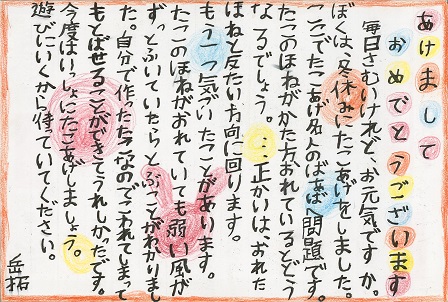 あけまして
おめでとうございます
毎日さむいけれど、お元気ですか。
ぼくは、冬休みにたこあげをしました。
ここでたこあげ名人のばあばへ問題です。
たこのほねがかた方おれているとどう
なるでしょう。…正かいは、おれた
ほねと反たい方向に回ります。
もう一つ気づいたことがあります。
たこのほねがおれていても弱い風が
ずっとふいていたらとぶことがわかりまし
た。自分で作ったたこなのでこわれてしまって
もとばせることができてうれしかったです。
今度はいっしょにたこあげしましょう。
遊びにいくから待っていてください。
岳拓